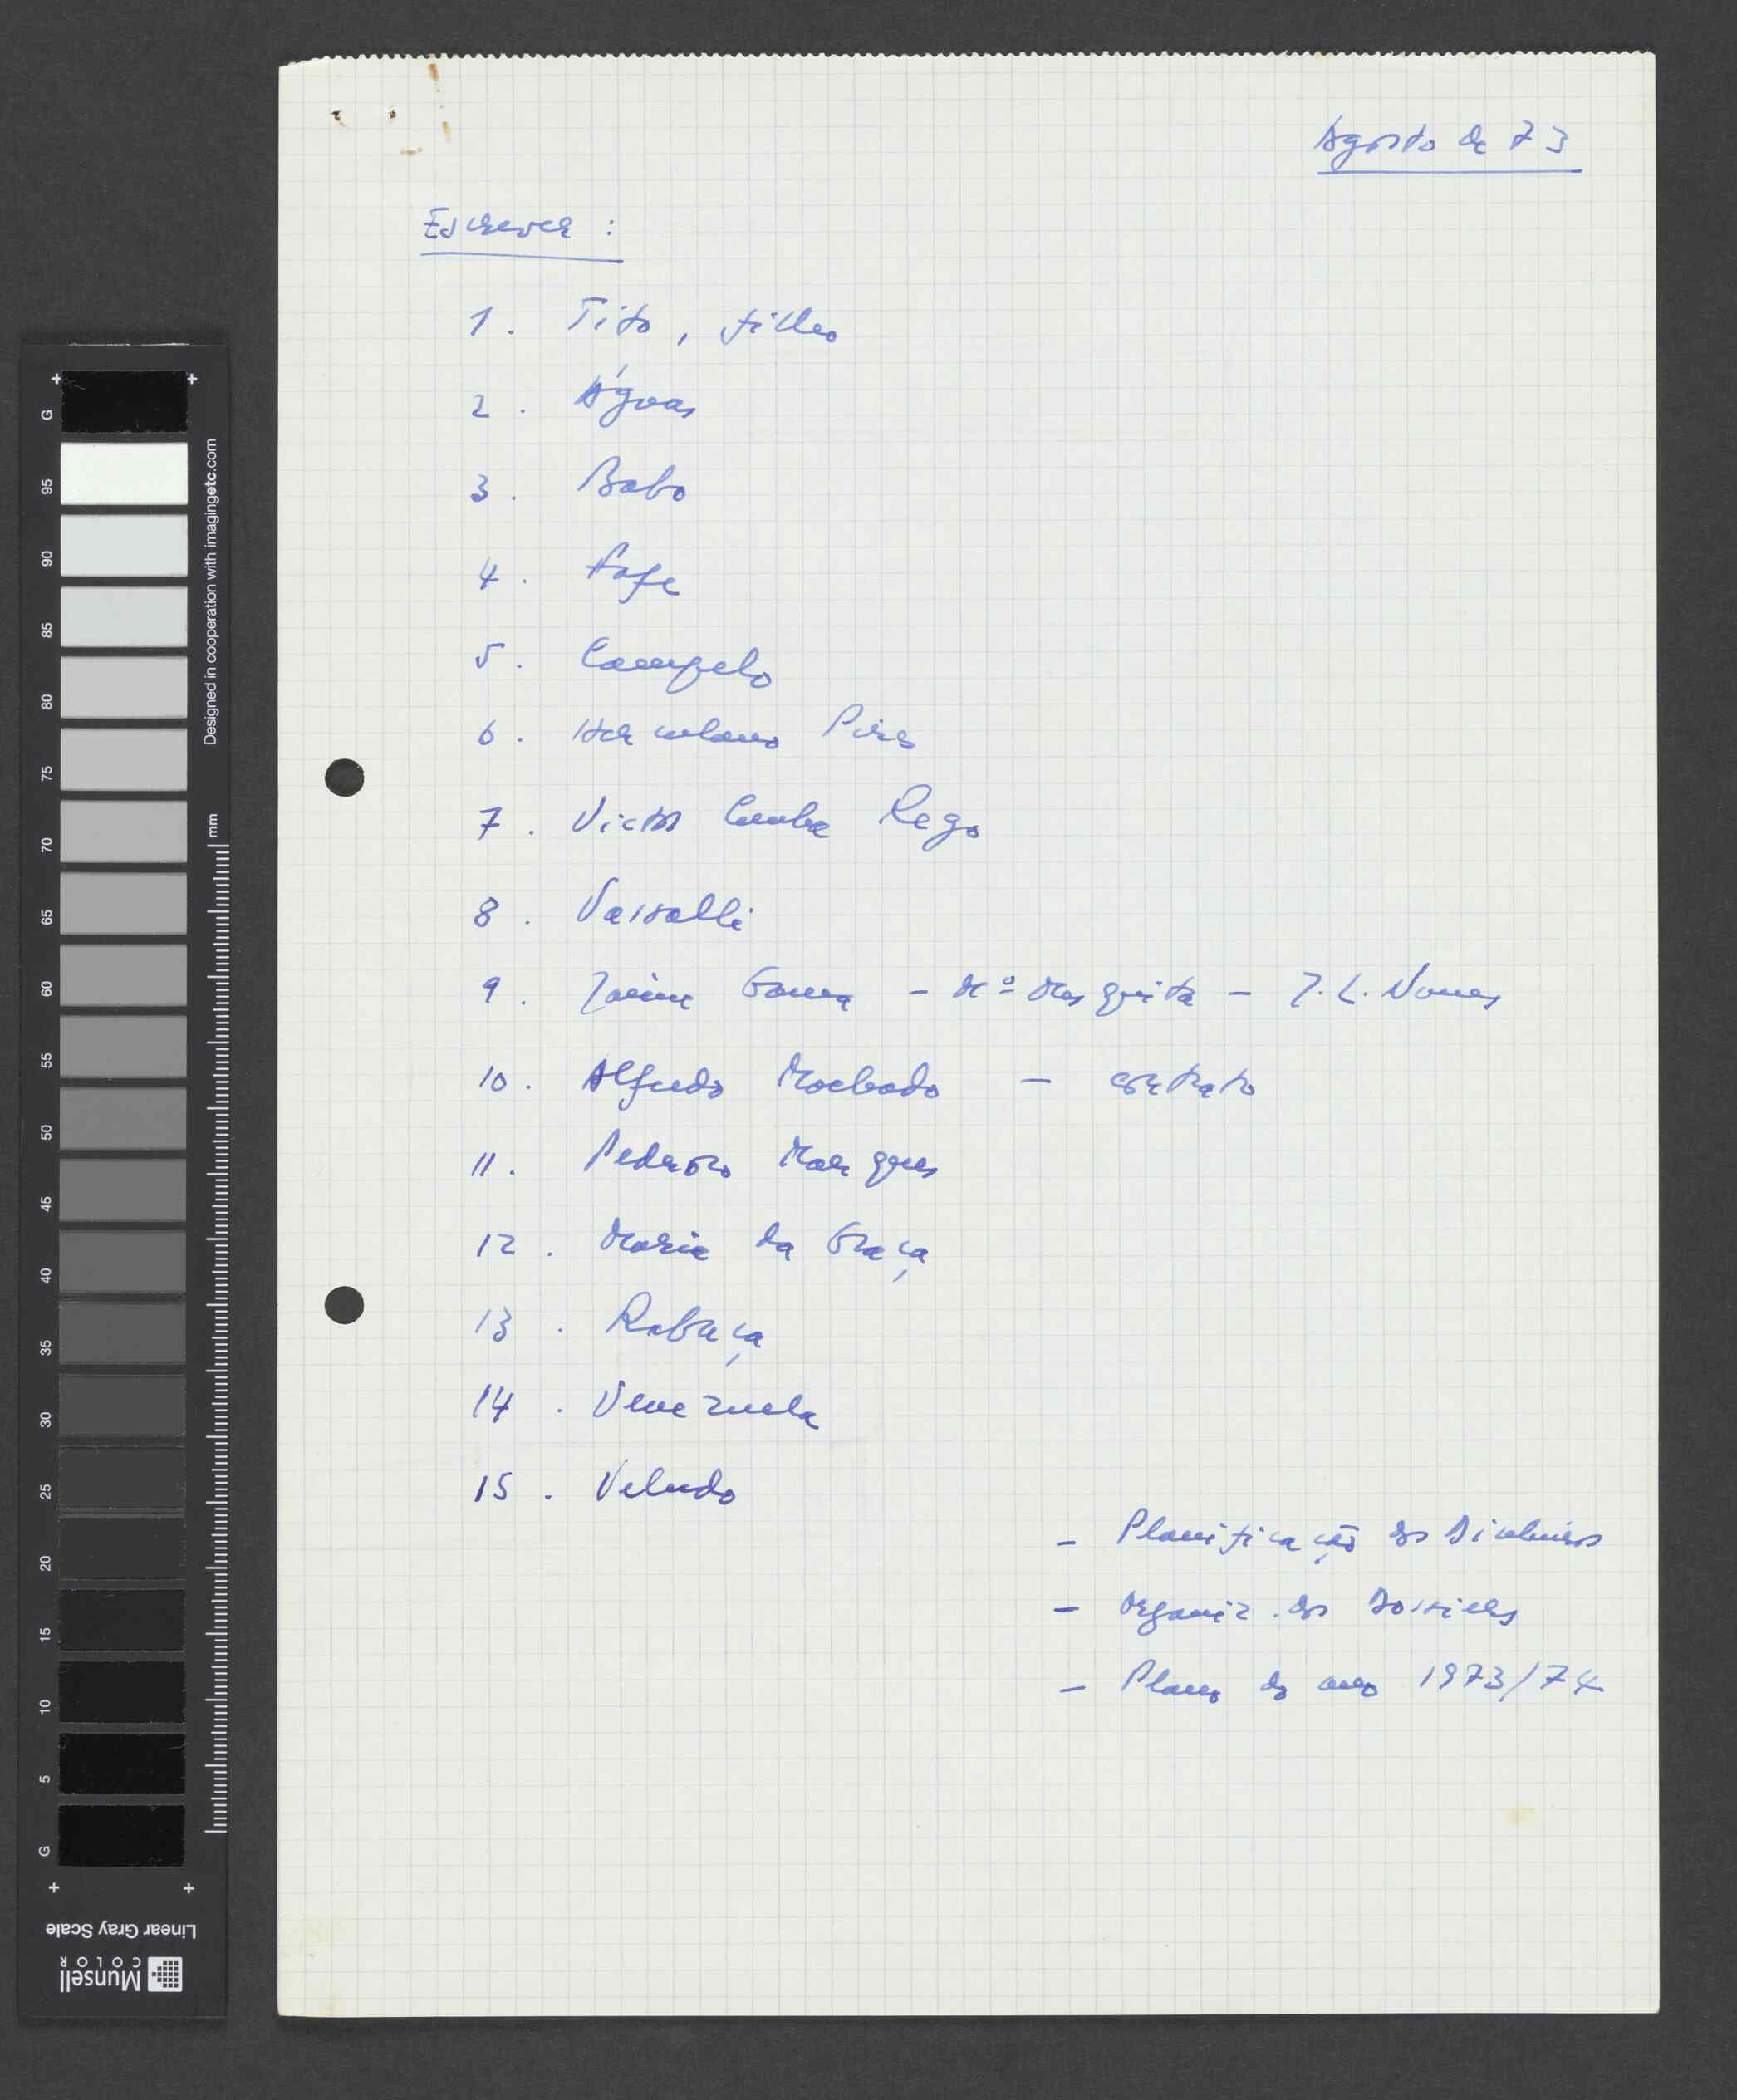 Agosto de 73
Escrever :
1. Tito, filho
2. Águas
3. Babo
4. Fafe
5. Campelo
6. Herculano Pires
7. Victor Cunha Rego
8. Vassalli
9. Jaime Gama - Mº Mesquita - J. L. Nunes
10. Alfredo Machado - contrato
11. Pedroso Marques
12. Maria da Graça
13. Rabaça
14. Venezuela
15. Veludo
- Planificação dos Dinheiros
- Organiz. dos Dossiers
- Plano do ano 1973/74
G
95
90
85
80
75
70
65
60
55
50
45
40
35
30
25
20
15
10
5
G
Designed in cooperation with imagingetc.com
mm
Linear Gray Scale
Munsell
COLOR